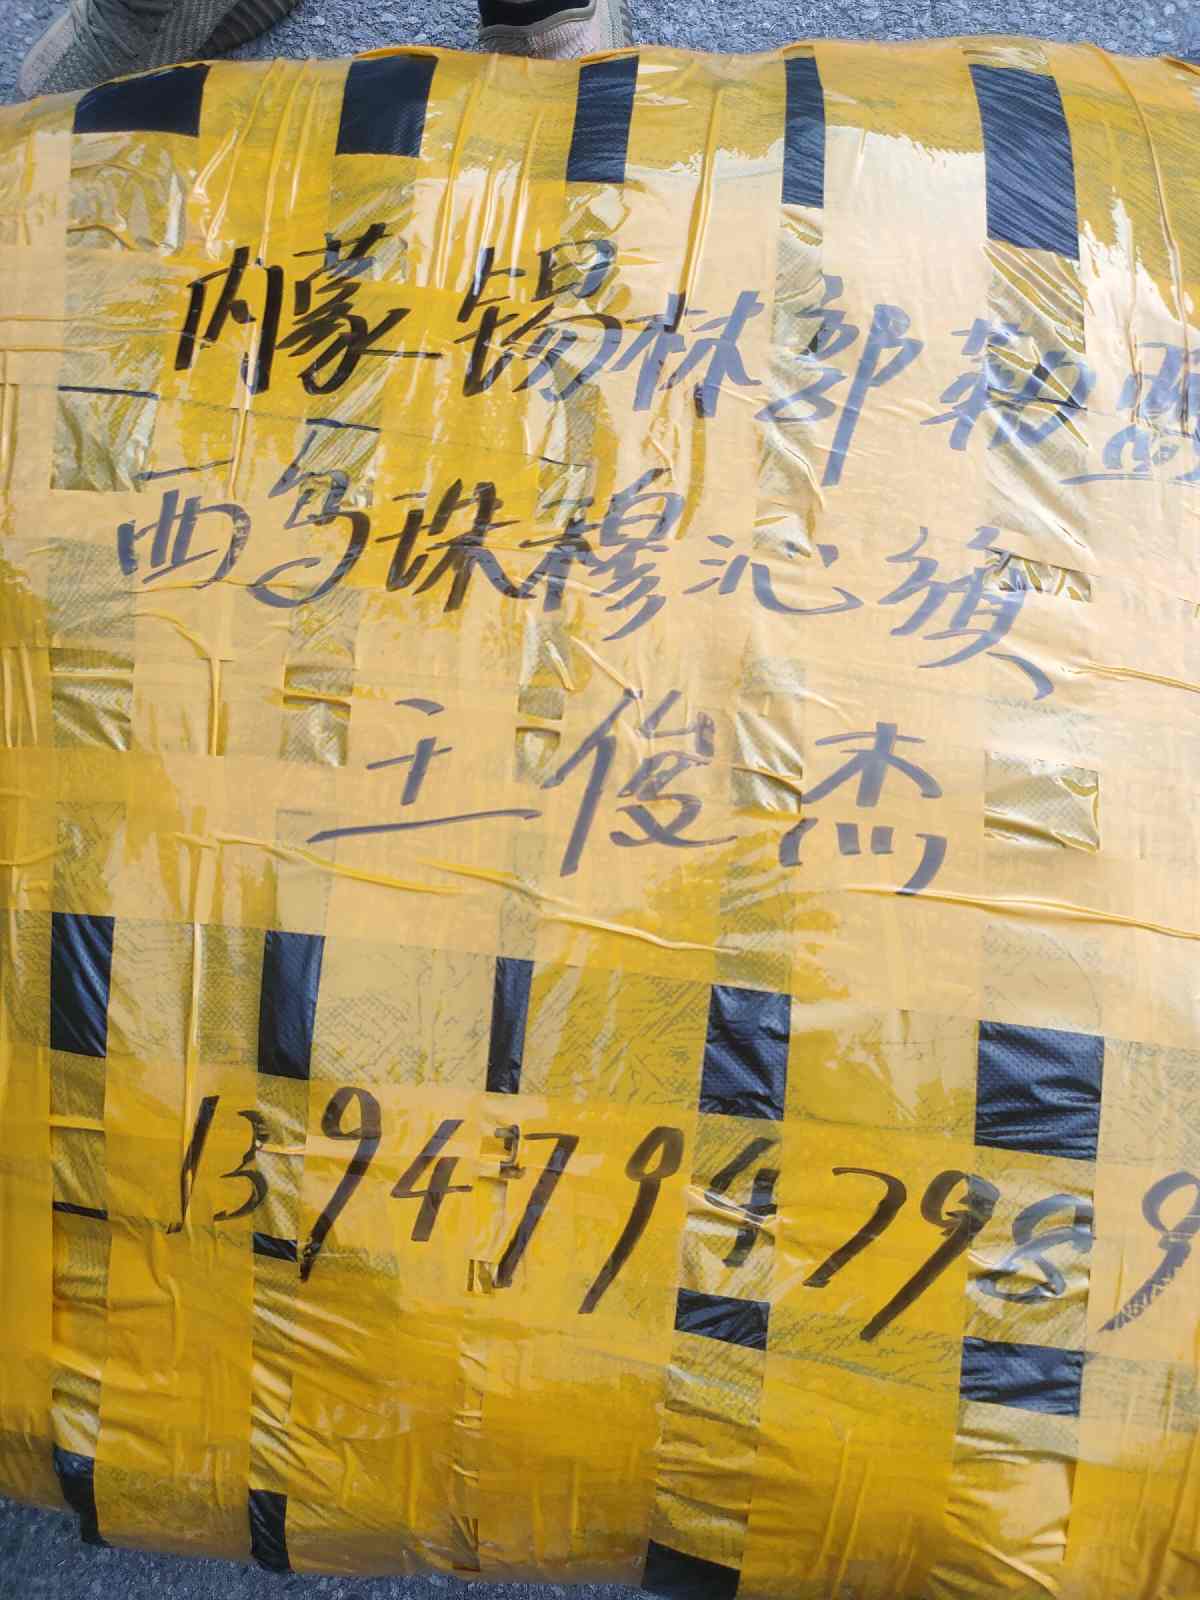 内蒙锡林郭勒盟
西乌珠穆沁旗
王俊杰
13947947989